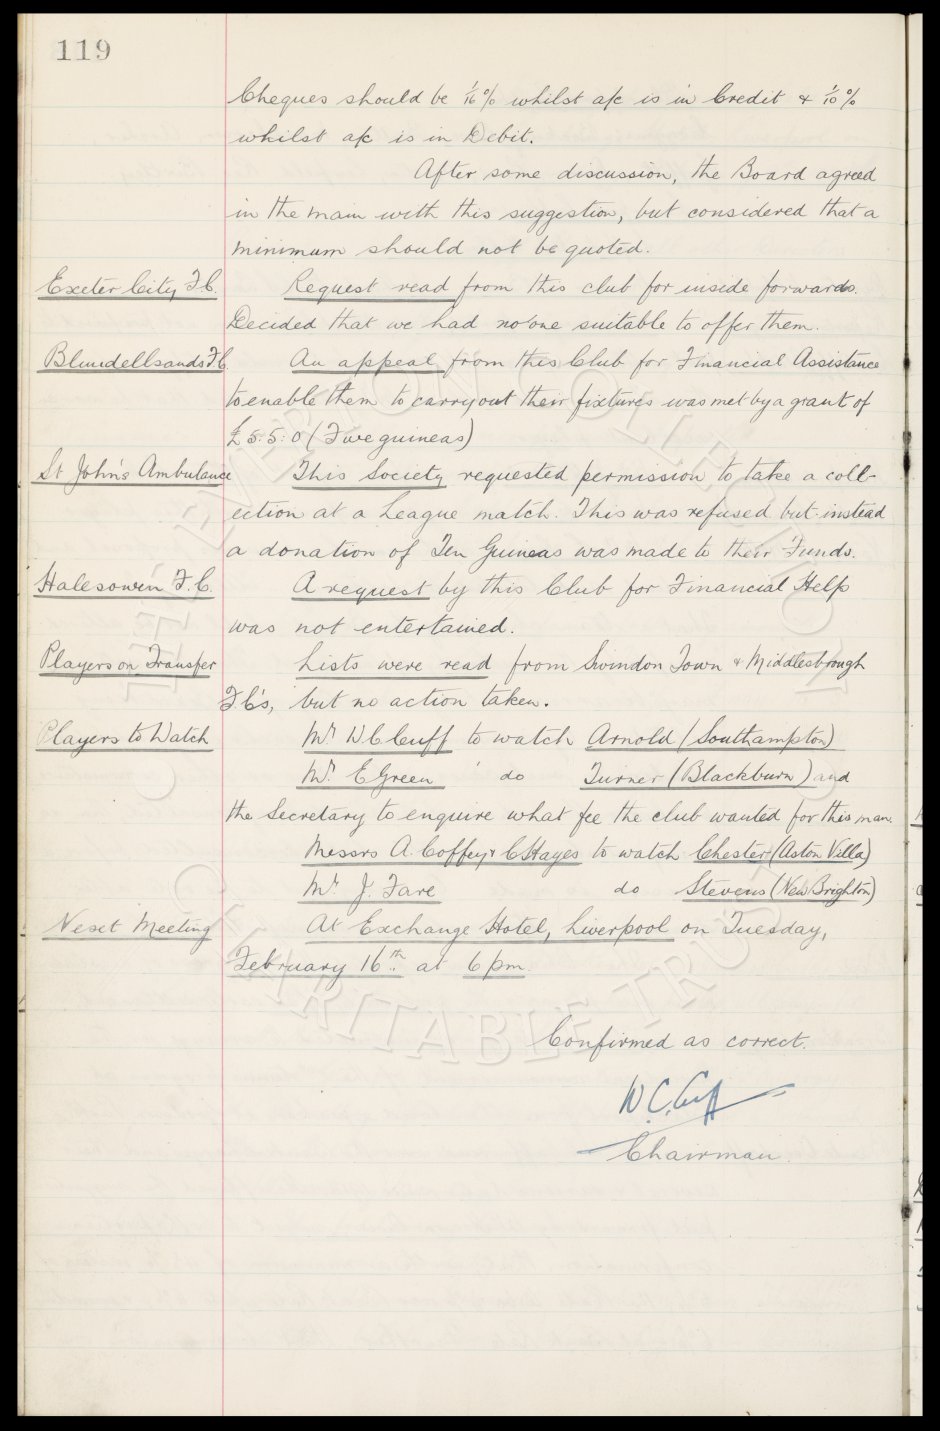 119
Cheques should be 1/16% whilst a/c is in Credit & 1/10%
whilst a/c is in Debit.
After some discussion, the Board agreed
in the main with this suggestion, but considered that a
minimum should not be quoted.
Exeter City F.C. Request read from this club for inside forwards.
Decided that we had no one suitable to offer them.
Blundellsands F.C. An appeal from this Club for Financial Assistance
to enable them to carry out their fixtures was met by a grant of
£5:5:0 (Five guineas)
St John's Ambulance This Society requested permission to take a coll-
ection at a League match. This was refused but instead
a donation of Ten Guineas was made to their Funds.
Halesowen F.C. A request by this Club for Financial Help
was not entertained.
Players on Transfer Lists were read from Swindon Town & Middlesbrough
F.C's, but no action taken.
Players to Watch Mr W C Cuff to watch Arnold (Southampton)
Mr. E Green do Turner (Blackburn) and
the Secretary to enquire what fee the club wanted for this man.
Messrs A. Coffey & C Hayes to watch Chester (Aston Villa)
Mr J. Fare do Stevens (New Brighton)
Next Meeting At Exchange Hotel, Liverpool on Tuesday,
February 16th at 6 pm.
Confirmed as correct.
W.C. Cuff
Chairman.
THE EVERTON COLLECTION
CHARITABLE TRUST